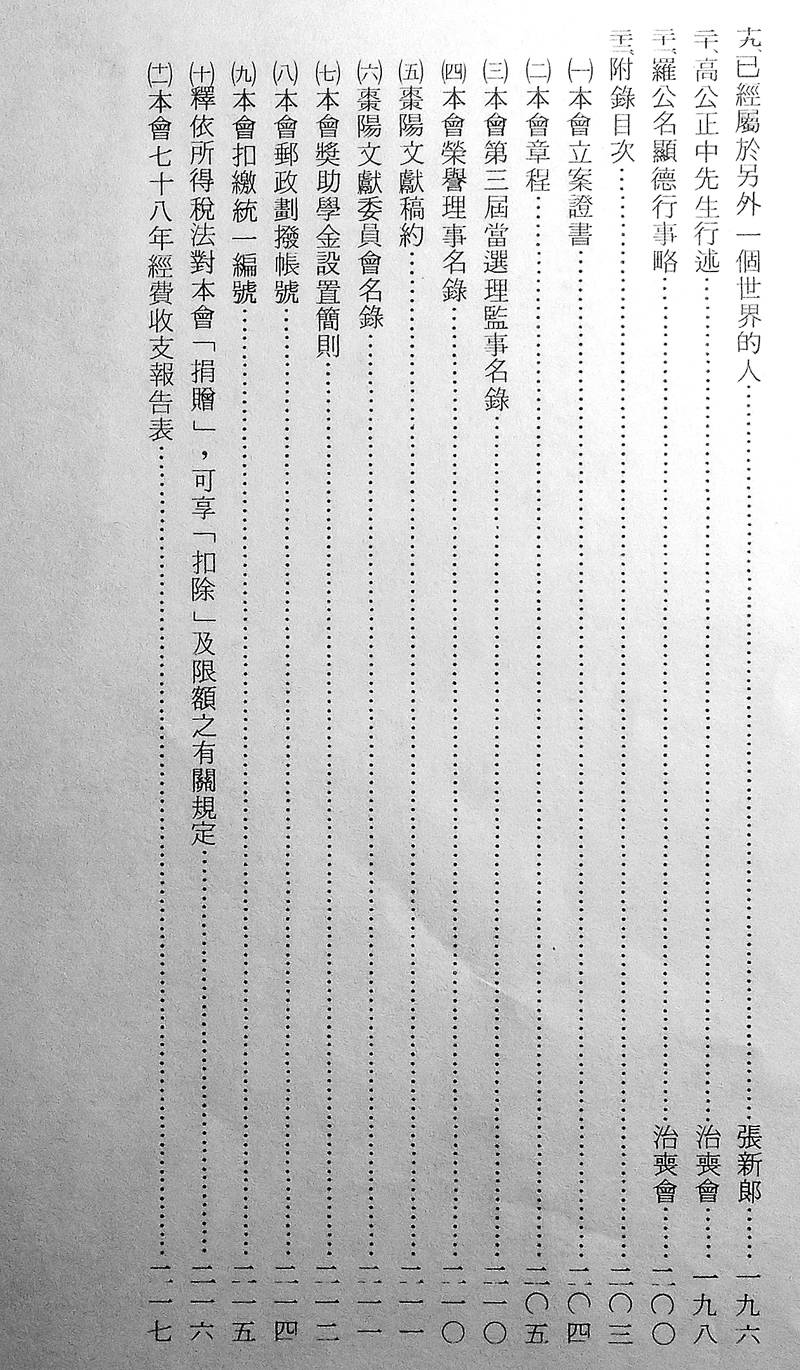 十九、已經屬於另外一個世界的人……張新郎……一九六
二十、高公正中先生行述……治喪會……一九八
二十一、羅公名顯德行事略……治喪會……二〇〇
二十二、附錄目次……二〇三
㈠本會立案證書……二〇四
㈡本會章程……二〇五
㈢本會第三屆當選理監事名錄……二一〇
㈣本會榮譽理事名錄……二一〇
㈤棗陽文獻稿約……二一一
㈥棗陽文獻委員會名錄……二一一
㈦本會獎助學金設置簡則……二一二
㈧本會郵政劃撥帳號……二一四
㈨本會扣繳統一編號……二一五
㈩釋依所得稅法對本會「捐贈」，可享「扣除」及限額之有關規定……二一六
(十一)本會七十八年經費收支報告表……二一七